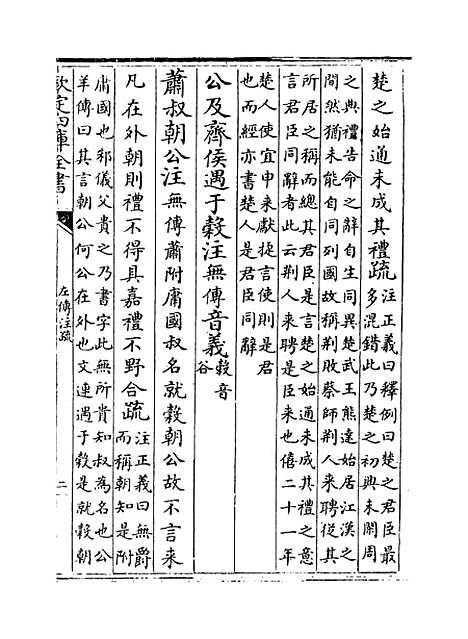 楚之始通未成其禮疏
注正義曰釋例曰楚之君臣最
多混錯此乃楚之初興未閑周
之典禮告命之辭自生同異楚武王熊達始居江漢之
間然猶未能自同列國故稱荆敗蔡師荆人來聘從其
所居之稱而總其君臣是言楚之始通未成其禮之意
言君臣同辭者此云荆人來聘是臣來也僖二十一年
楚人使宜申來獻捷言使則是君
也而經亦書楚人是君臣同辭
公及齊侯遇于穀注無傳音義
穀音
谷
蕭叔朝公注無傳蕭附庸國叔名就穀朝公故不言來
凡在外朝則禮不得具嘉禮不野合疏
注正義曰無爵
而稱朝知是附
庸國也邾儀父貴之乃書字此無所貴知叔為名也公
羊傳曰其言朝公何公在外也文連遇于穀是就穀朝
欽定四庫全書
左傳注疏
二